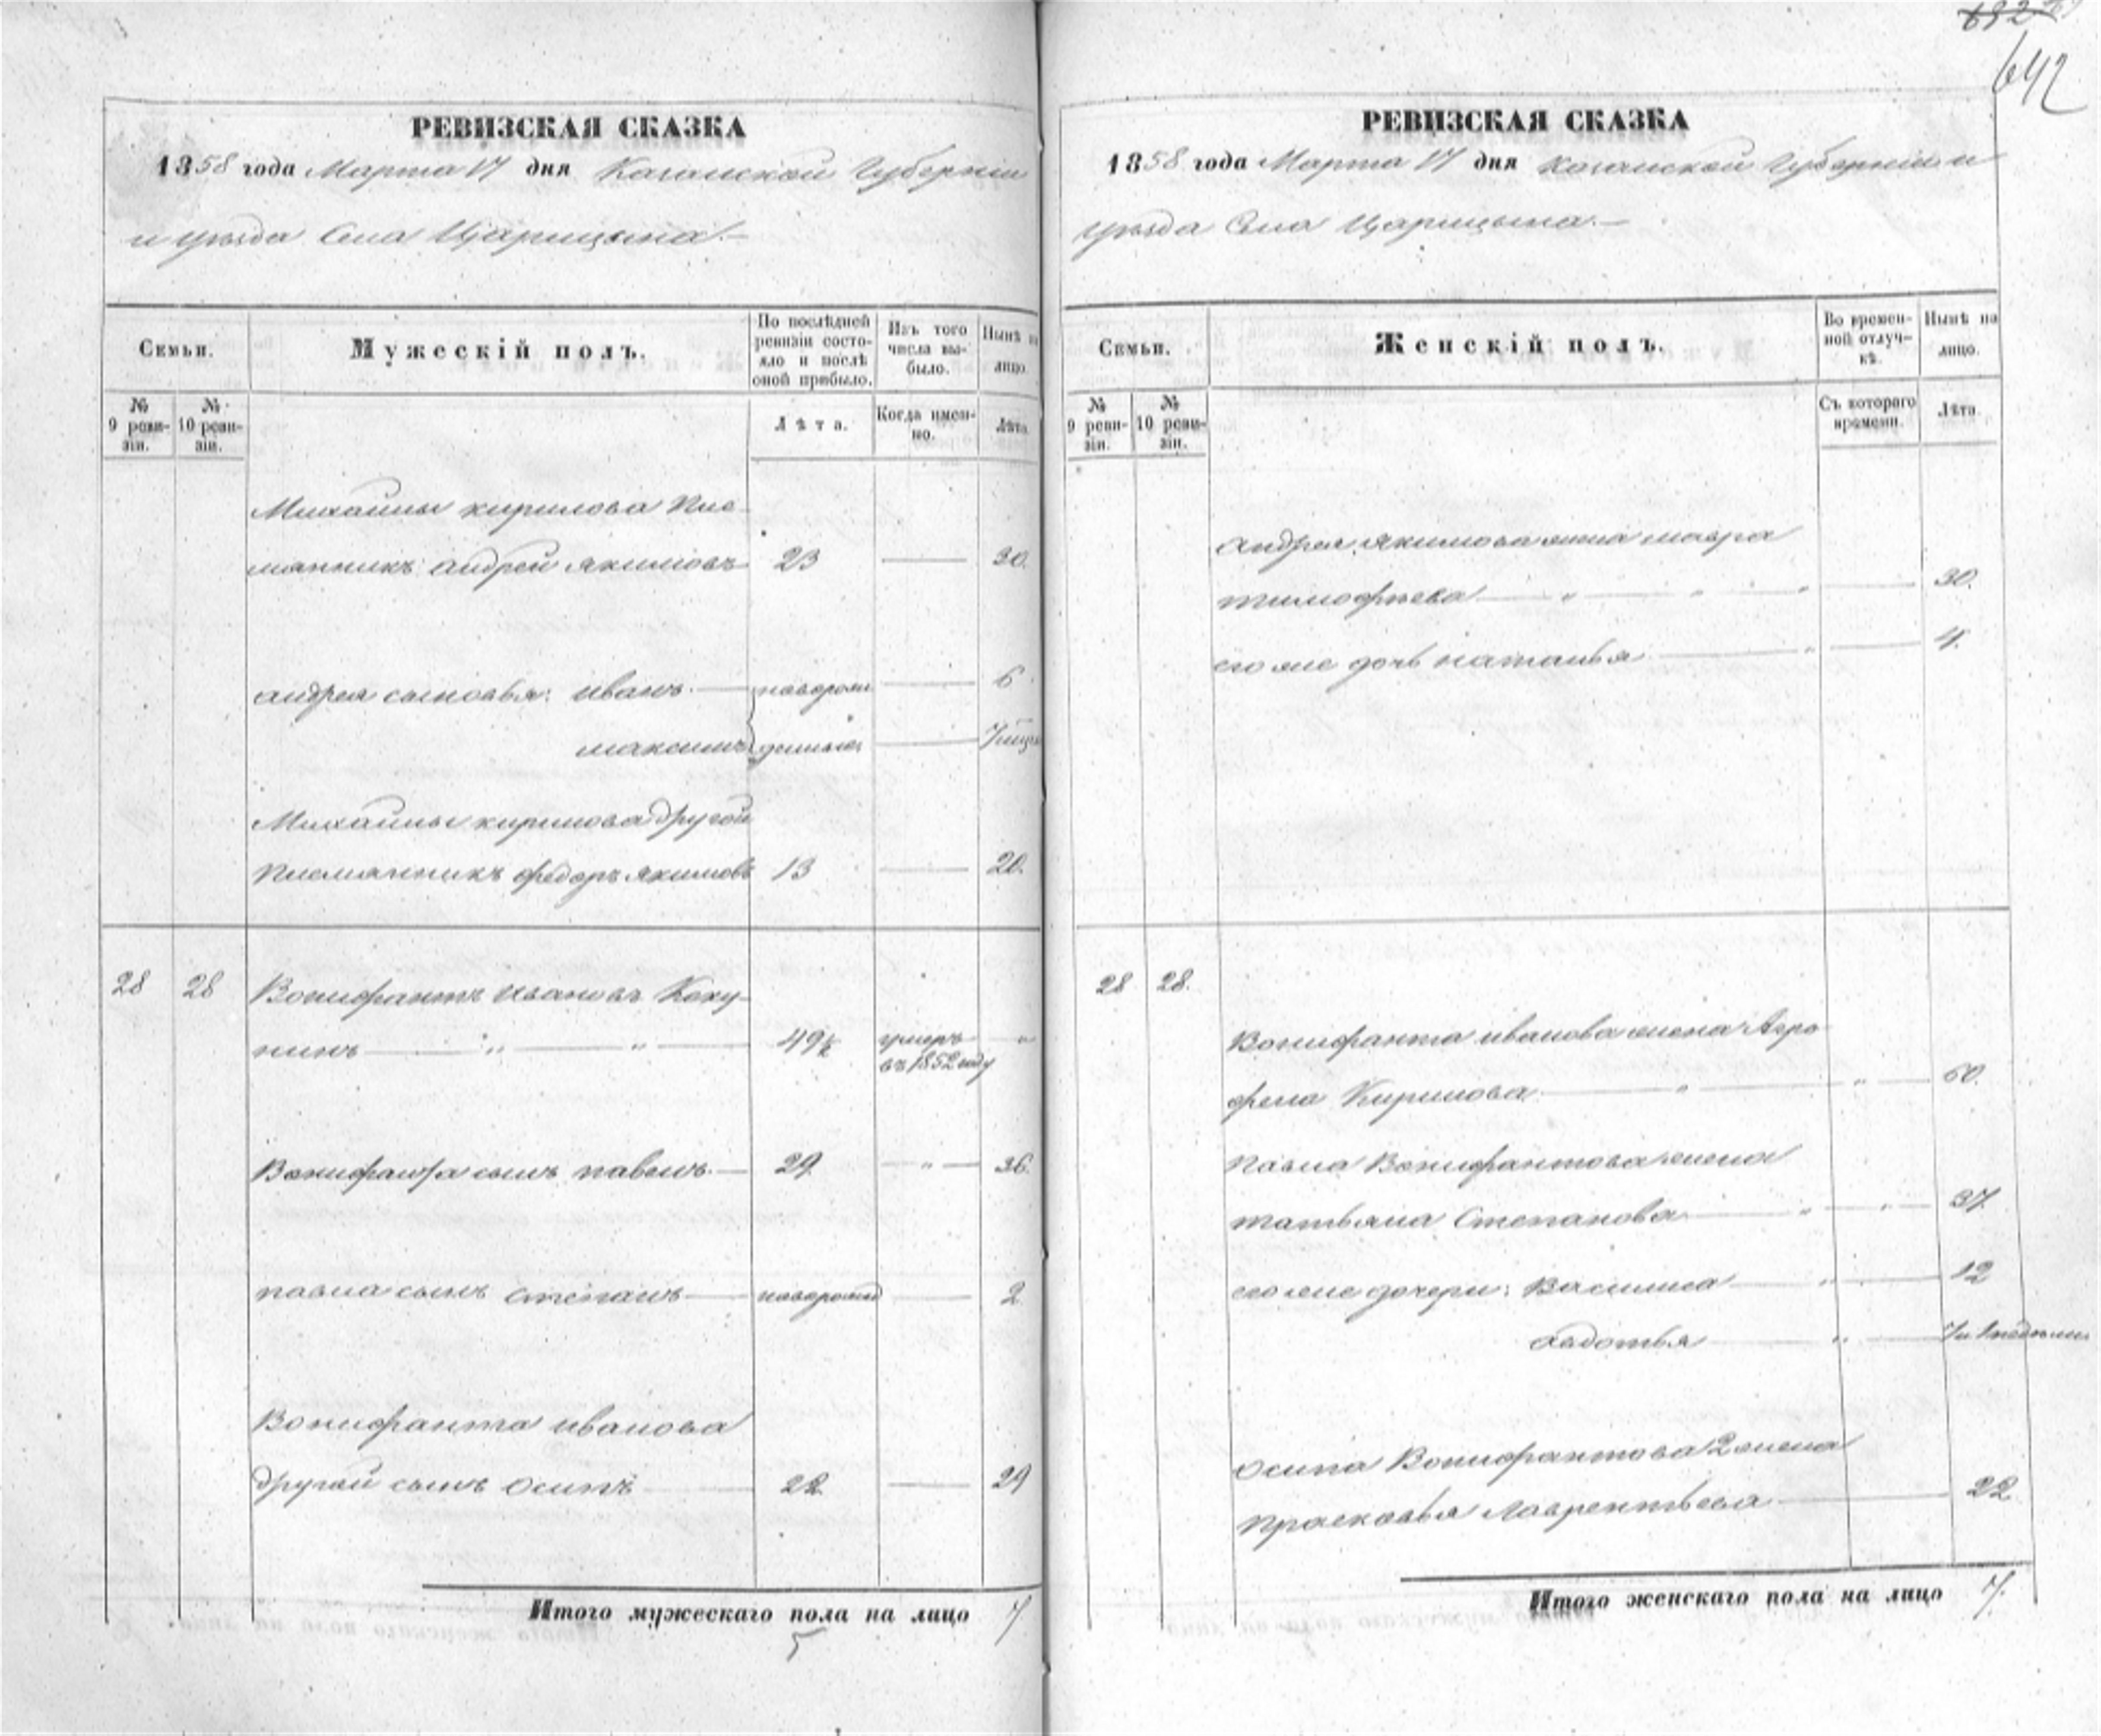 642
РЕВИЗСКАЯ СКАЗКА
1858 года Марта 17 дня Казанской Губерніи
и уѣзда Села Царицына.—
Семьи.
Мужескій полъ.
По послѣдней ревизіи состояло и послѣ оной прибыло.
Изъ того числа выбыло.
Нынѣ на лицо.
№ 9 ревизіи.
№ 10 ревизіи.
Лѣта.
Когда именно.
Лѣта.
Михайлы Кирилова Пле-
мянникъ Андрей Якимовъ 23 — 30.
Андрея сыновья: Иванъ — новорож 6
Максимъ денные — 7
Михайлы Кирилова другой
Племянникъ Федоръ Якимовъ 13 — 20.
28 28 Вонифантъ Ивановъ Коку-
нинъ — " — " — 49½ умеръ въ 1852 году "
Вонифанта сынъ Павелъ — 29 — " — 36.
Павла сынъ Степанъ — новорожд — 2
Вонифанта Иванова
другой сынъ Осипъ 22 — 29
Итого мужескаго пола на лицо 7
5
РЕВИЗСКАЯ СКАЗКА
1858 года Марта 17 дня Казанской Губерніи и
уѣзда Села Царицына.—
Семьи.
Женскій полъ.
Во временной отлучкѣ.
Нынѣ на лицо.
№ 9 ревизіи.
№ 10 ревизіи.
Съ котораго времени.
Лѣта.
Андрея Якимова жена Мавра
Тимофѣева — " — " — " — 30.
его же дочь Наталья — " — 4.
28 28.
Вонифанта Иванова жена Агра-
фена Кирилова — " — " — 60.
Павла Вонифантова жена
Татьяна Степанова — " — " — 37.
его же дочери: Василиса — " — 12
Авдотья — " — 7 недѣли
Осипа Вонифантова 2 жена
Прасковья Лаврентьева — 22
Итого женскаго пола на лицо 7.